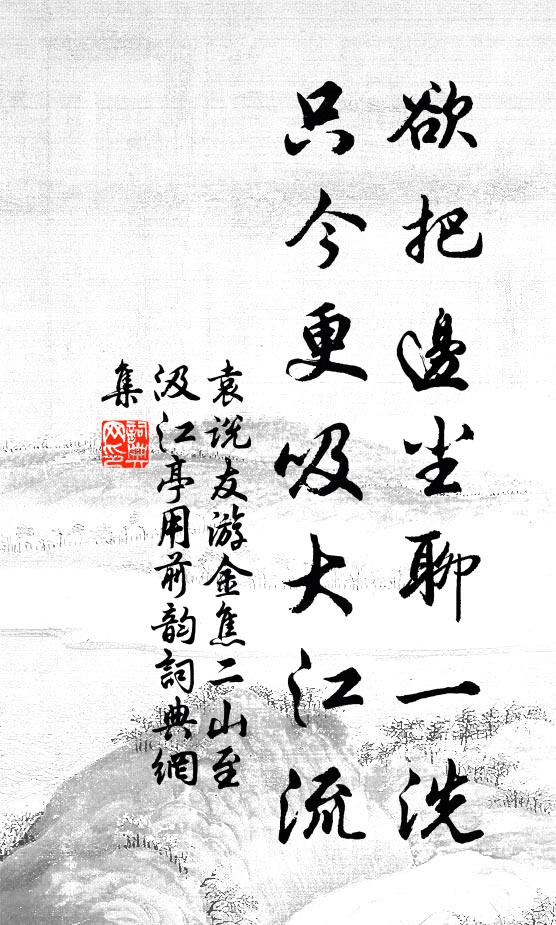 欲把邊尘聊一洗
只今更吸大江流
袁说友游金焦二山至
汲江亭用前韵詞典網
集